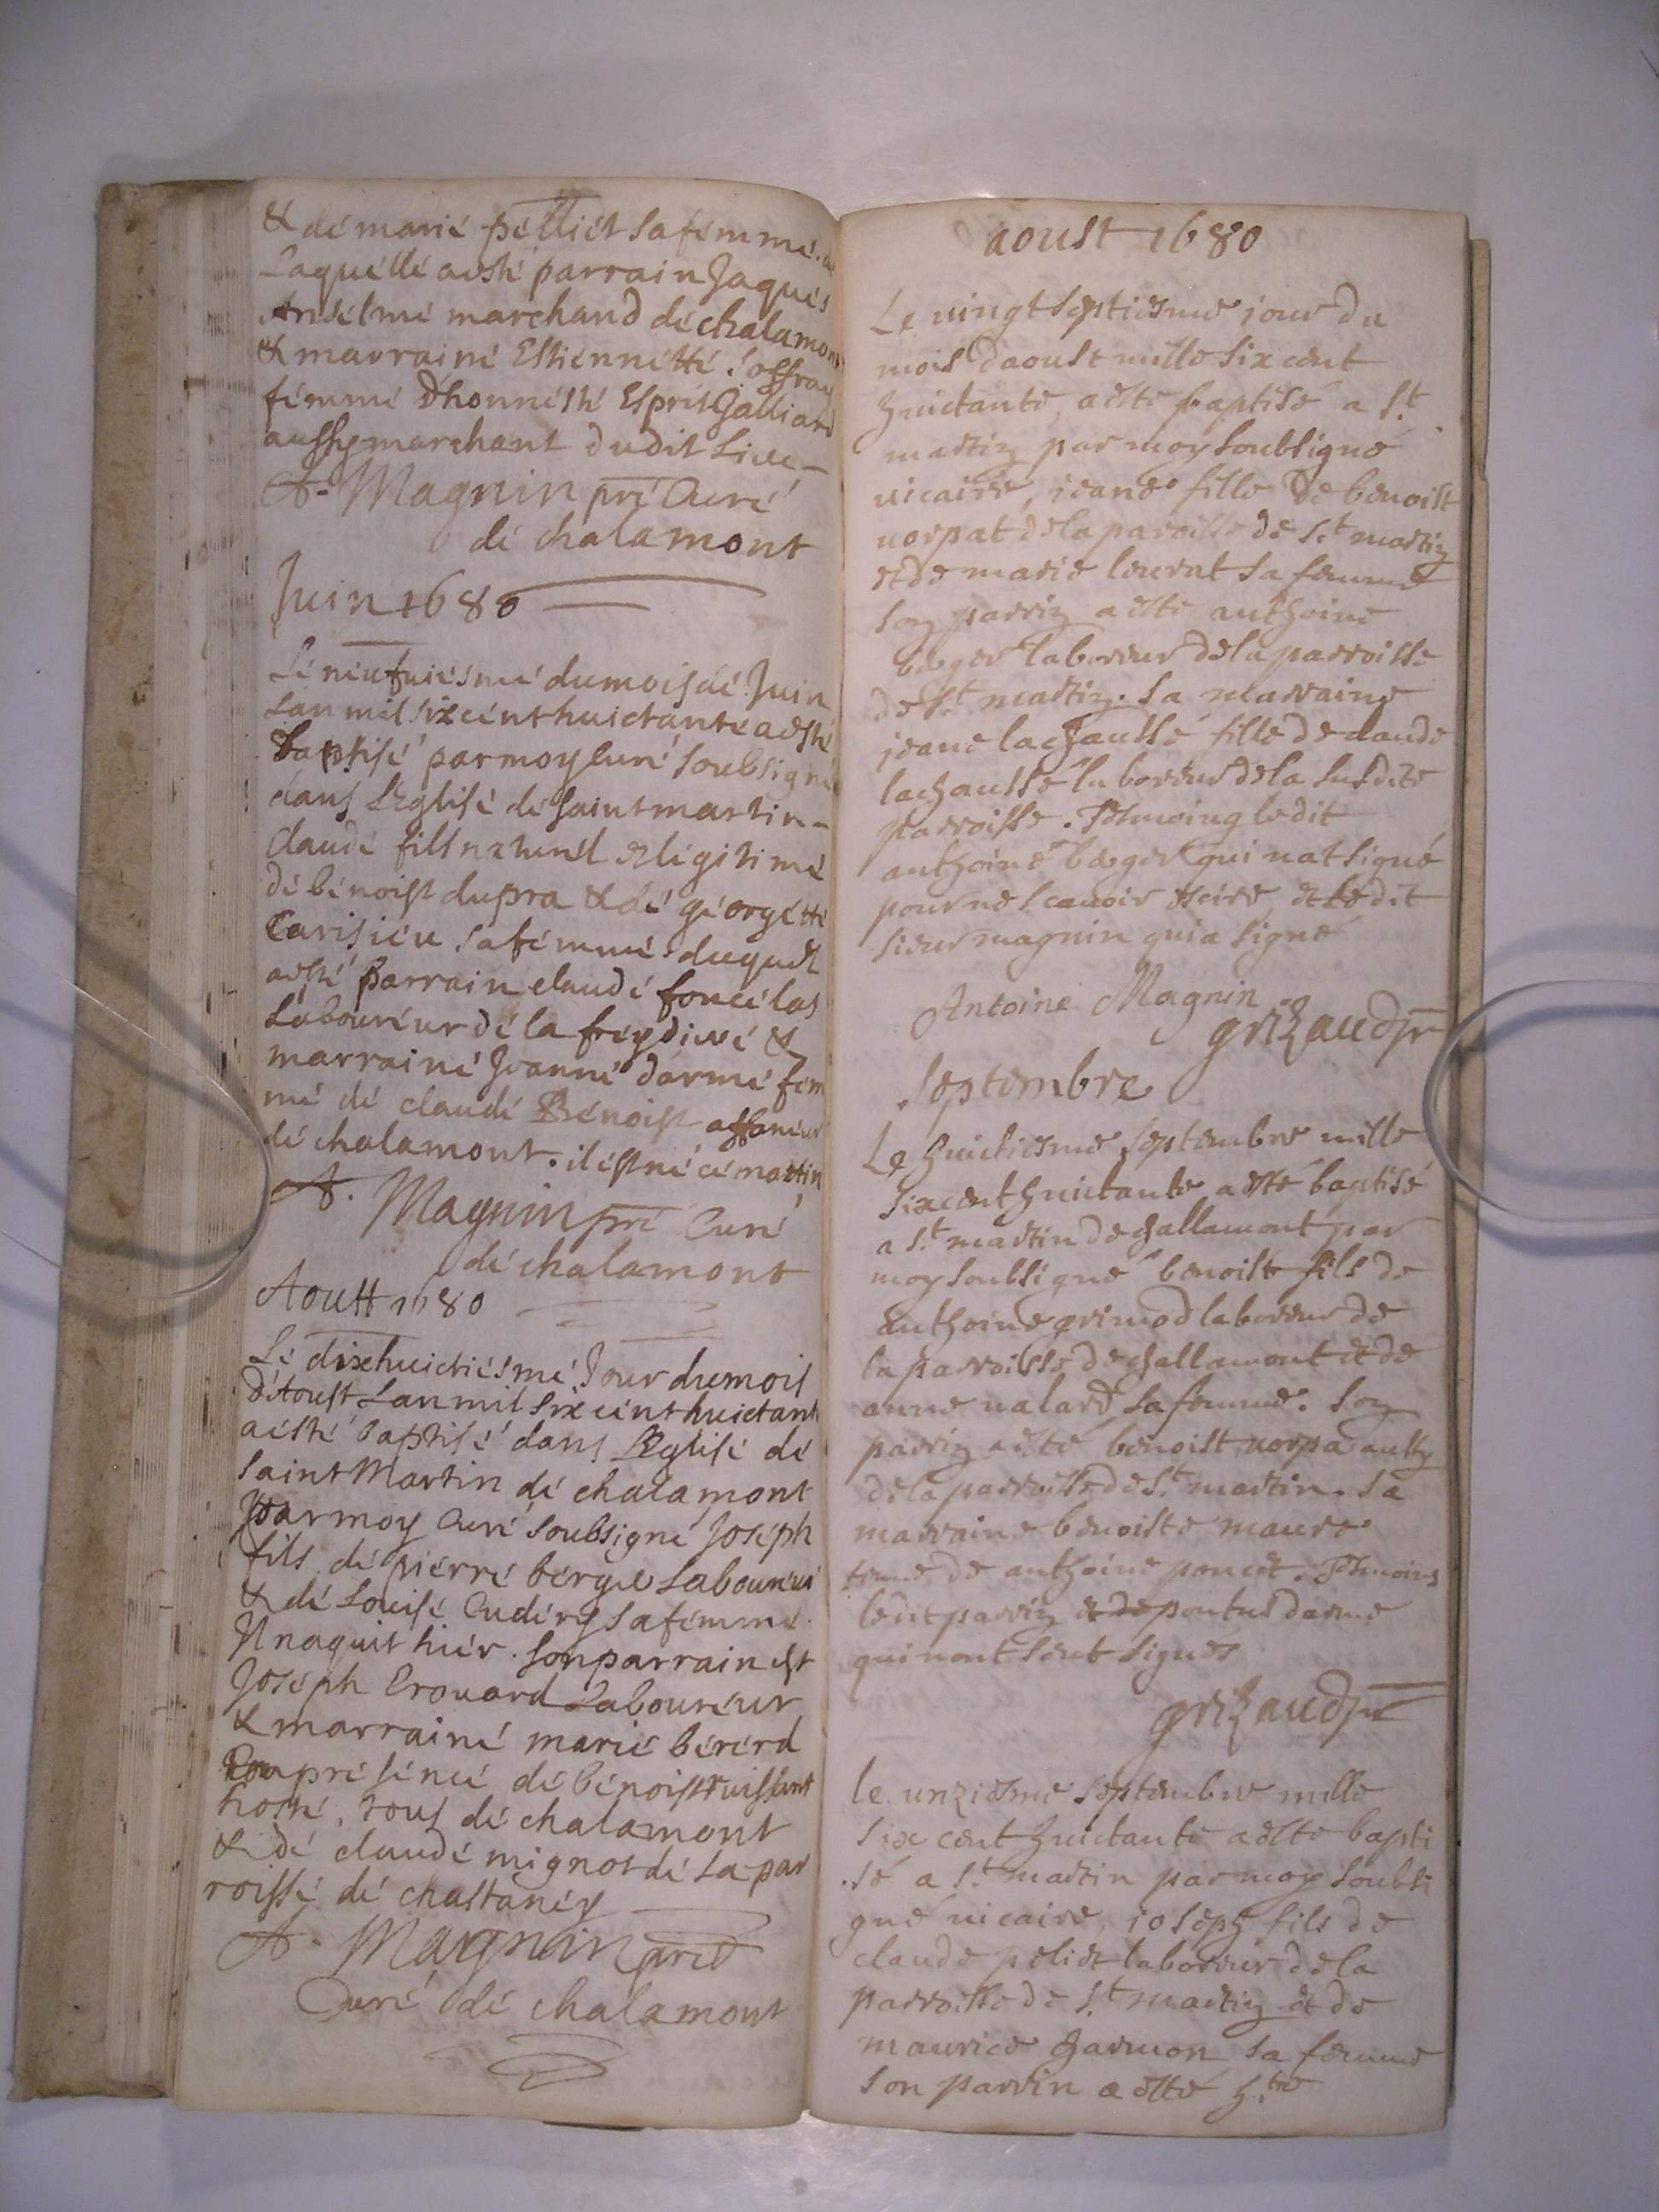 & dé marié pélliét sa fémmé. a
Laquéllé aesté parrain Jaqués
Ansélmé marchand dé chalamont
& marrainé Estiénnétté
fémmé d'honnésté Esprit Galliard
aussy marchant dudit Lieu
A. Magnin pré Curé
dé chalamont
Juin 1680
Lé néufuiésmé du mois dé Juin
Lan mil six cént huictanté aesté
baptisé par moy curé soubsigné
dans L'Eglisé dé saint martin
Claudé fils naturél & légitimé
dé bénoist dupra & dé géorgétté
Carisiéu sa fémmé duquél
aesté parrain claudé foncélas
Labouréur dé la fréydiéré &
marrainé Jeanné darmé fém
mé dé claudé Bénoist affanéur
dé chalamont. il est né cé matin
A. Magnin pré Curé
dé chalamont
Aoust 1680
Lé dixhuictiésmé Jour du mois
d'Aoust Lan mil six cént huictanté
aésté baptisé dans L'Eglisé dé
saint Martin dé chalamont
par moy Curé soubsigné Joséph
fils dé piérré bérgér Labouréur
& dé Louisé Cudéry sa fémmé.
Il naquit hiér. son parrain est
Joséph Crouard Labouréur
& marrainé marié bérérd
présencé dé bénoist
hosté, tous dé chalamont
& dé claudé mignot dé la par
roissé dé chastanéy
A. Magnin pré
Curé dé chalamont
aoust 1680
Le vingt septiesme jour du
mois daoust mille six cent
huictante, a este baptisé a St
martin par moy soubsigné
vicaire, jeane fille de benoist
vorpat de la paroisse de St martin
et de marie sa femme
son parrin a esté anthoine
berger laboreur de la parroisse
de St martin. sa marraine
jeane lachausse fille de claude
lachausse laboreur de la susdite
parroisse. Tesmoing ledit
anthoine berger qui nat signé
pour ne scauoir escire, et ledit
sieur magnin qui a signé
Antoine Magnin
grizaud pr
Septembre
Le huictiesme septembre mille
six cent huictante a esté baptisé
a St martin de challamont par
moy soubsigné benoist fils de
anthoine grimod laboreur de
la parroisse de challamont et de
anne valard sa femme. son
parrin a esté benoist vorpa aussy
de la parroisse de St martin. sa
marraine benoiste maure
feme de anthoine poncet. Tesmoins
ledit parrin et de pontus darme
qui nont seut signer
grizaud pr
le unziesme septembre mille
six cent huictante a esté bapti
sé a St martin par moy soubsi
gné vicaire, joseph fils de
claude peliet laboreur de la
parroisse de St martin et de
maurice garmon sa femme
son parrin a esté hte